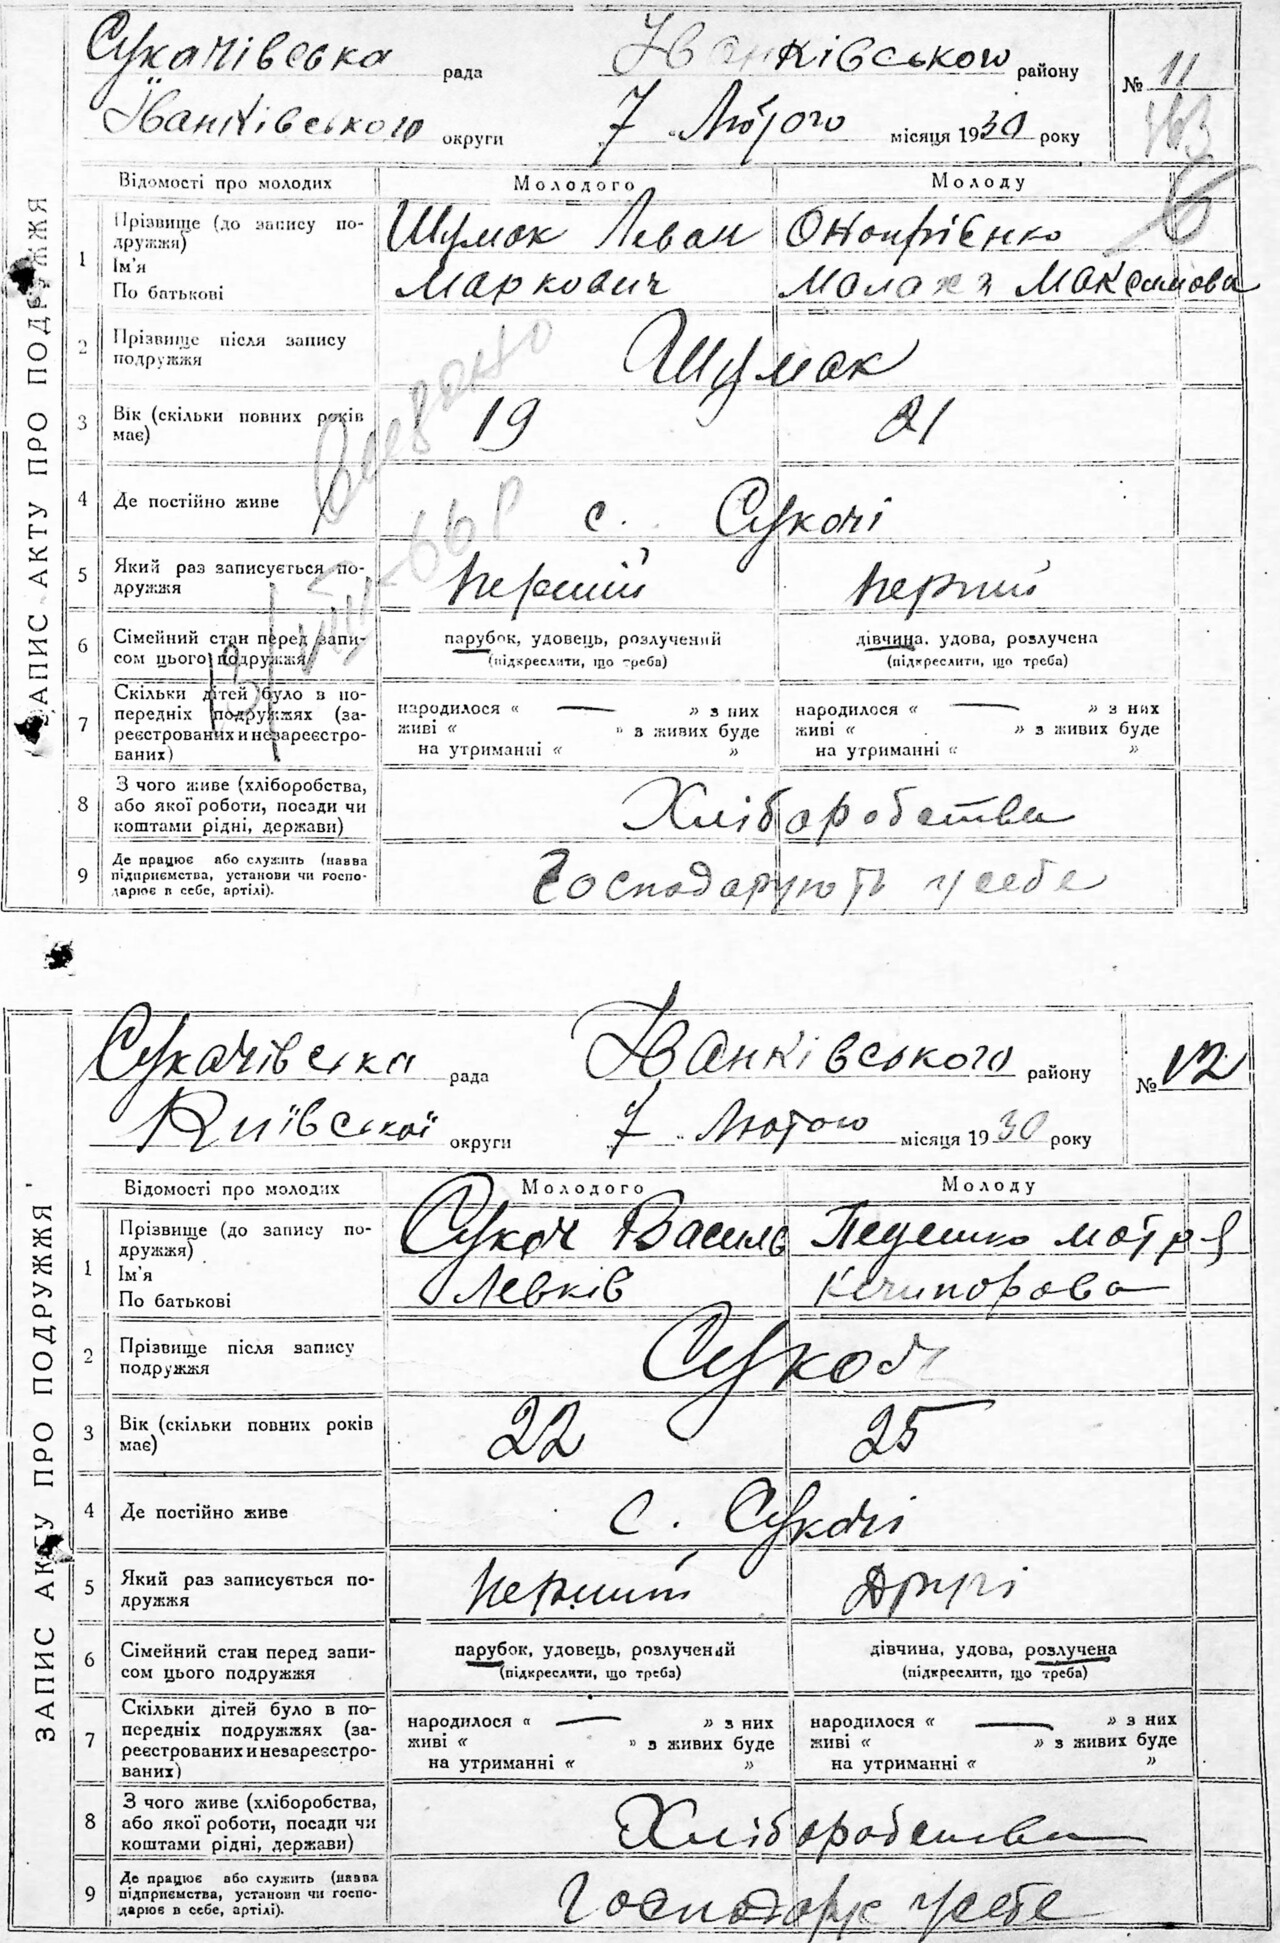 ЗАПИС АКТУ ПРО ПОДРУЖЖЯ
Сукачівська рада Іванківського району № 11
Іванківського округи 7 Лютого місяця 1930 року
Відомості про молодих Молодого Молоду
1 Прізвище (до запису подружжя) Ім'я По батькові
Шумак Леван Онопрієнко
Маркович Максимова
2 Прізвище після запису подружжя
Шумак
3 Вік (скільки повних років має) 19 21
4 Де постійно живе с. Сукачі
5 Який раз записується подружжя перший перший
6 Сімейний стан перед записом цього подружжя
парубок, удовець, розлучений дівчина, удова, розлучена
(підкреслити, що треба) (підкреслити, що треба)
7 Скільки дітей було в попередніх подружжях (зареєстрованих и незареєстрованих)
народилося « — » з них народилося « — » з них
живі « » з живих буде живі « » з живих буде
на утриманні « » на утриманні « »
8 З чого живе (хліборобства, або якої роботи, посади чи коштами рідні, держави)
Хліборобства
9 Де працює або служить (назва підприємства, установи чи господарює в себе, артілі).
Господарують у себе
13/VIII-66 р
ЗАПИС АКТУ ПРО ПОДРУЖЖЯ
Сукачівська рада Іванківського району № 12
Київської округи 7 Лютого місяця 1930 року
Відомості про молодих Молодого Молоду
1 Прізвище (до запису подружжя) Ім'я По батькові
Сукач Василь Мотря
Левків Кечипорова
2 Прізвище після запису подружжя
Сукач
3 Вік (скільки повних років має) 22 25
4 Де постійно живе с. Сукачі
5 Який раз записується подружжя перший Другі
6 Сімейний стан перед записом цього подружжя
парубок, удовець, розлучений дівчина, удова, розлучена
(підкреслити, що треба) (підкреслити, що треба)
7 Скільки дітей було в попередніх подружжях (зареєстрованих и незареєстрованих)
народилося « — » з них народилося « — » з них
живі « » з живих буде живі « » з живих буде
на утриманні « » на утриманні « »
8 З чого живе (хліборобства, або якої роботи, посади чи коштами рідні, держави)
Хліборобства
9 Де працює або служить (назва підприємства, установи чи господарює в себе, артілі).
Господарує у себе